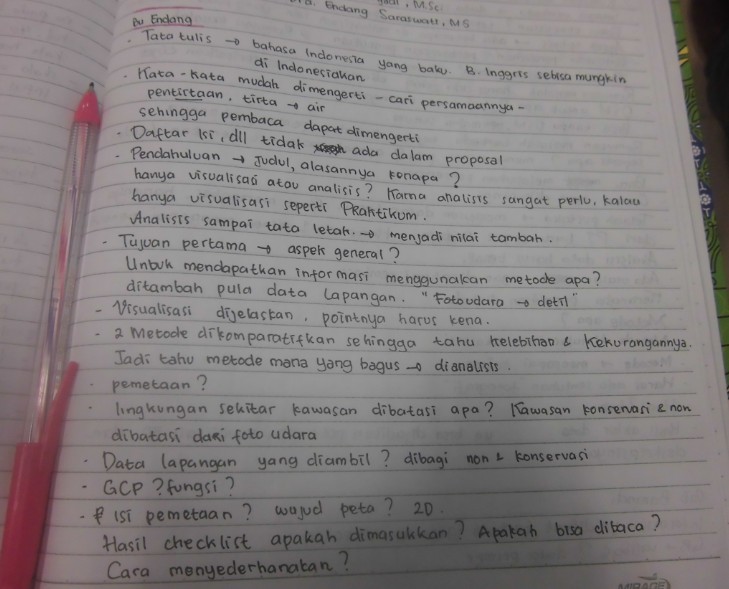 M.Sc.
Endang Saraswati, MS
Bu Endang
- Tata tulis → bahasa Indonesia yang baku. B. Inggris sebisa mungkin
di Indonesiakan
- Kata-kata mudah dimengerti – cari persamaannya –
pentirtaan, tirta → air
sehingga pembaca dapat dimengerti
- Daftar Isi, dll tidak ada dalam proposal
- Pendahuluan → Judul, alasannya kenapa?
hanya visualisasi atau analisis? Karna analisis sangat perlu, kalau
hanya visualisasi seperti Praktikum.
Analisis sampai tata letak. → menjadi nilai tambah.
- Tujuan pertama → aspek general?
Untuk mendapatkan informasi menggunakan metode apa?
ditambah pula data lapangan. "Foto udara → detil"
- Visualisasi dijelaskan, pointnya harus kena.
- 2 Metode dikomparatifkan sehingga tahu kelebihan & kekurangannya.
Jadi tahu metode mana yang bagus → dianalisis.
- pemetaan?
- lingkungan sekitar kawasan dibatasi apa? Kawasan konservasi & non
dibatasi dari foto udara
- Data lapangan yang diambil? dibagi non & konservasi
- GCP? fungsi?
- Isi pemetaan? wujud peta? 2D.
Hasil checklist apakah dimasukkan? Apakah bisa dibaca?
Cara menyederhanakan?
MIRAGE